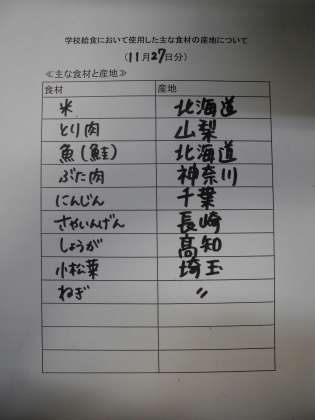 学校給食において使用した主な食材の産地について
（11月27日分）
≪主な食材と産地≫
食材 産地
米 北海道
とり肉 山梨
魚（鮭） 北海道
ぶた肉 神奈川
にんじん 千葉
さやいんげん 長崎
しょうが 高知
小松菜 埼玉
ねぎ 〃